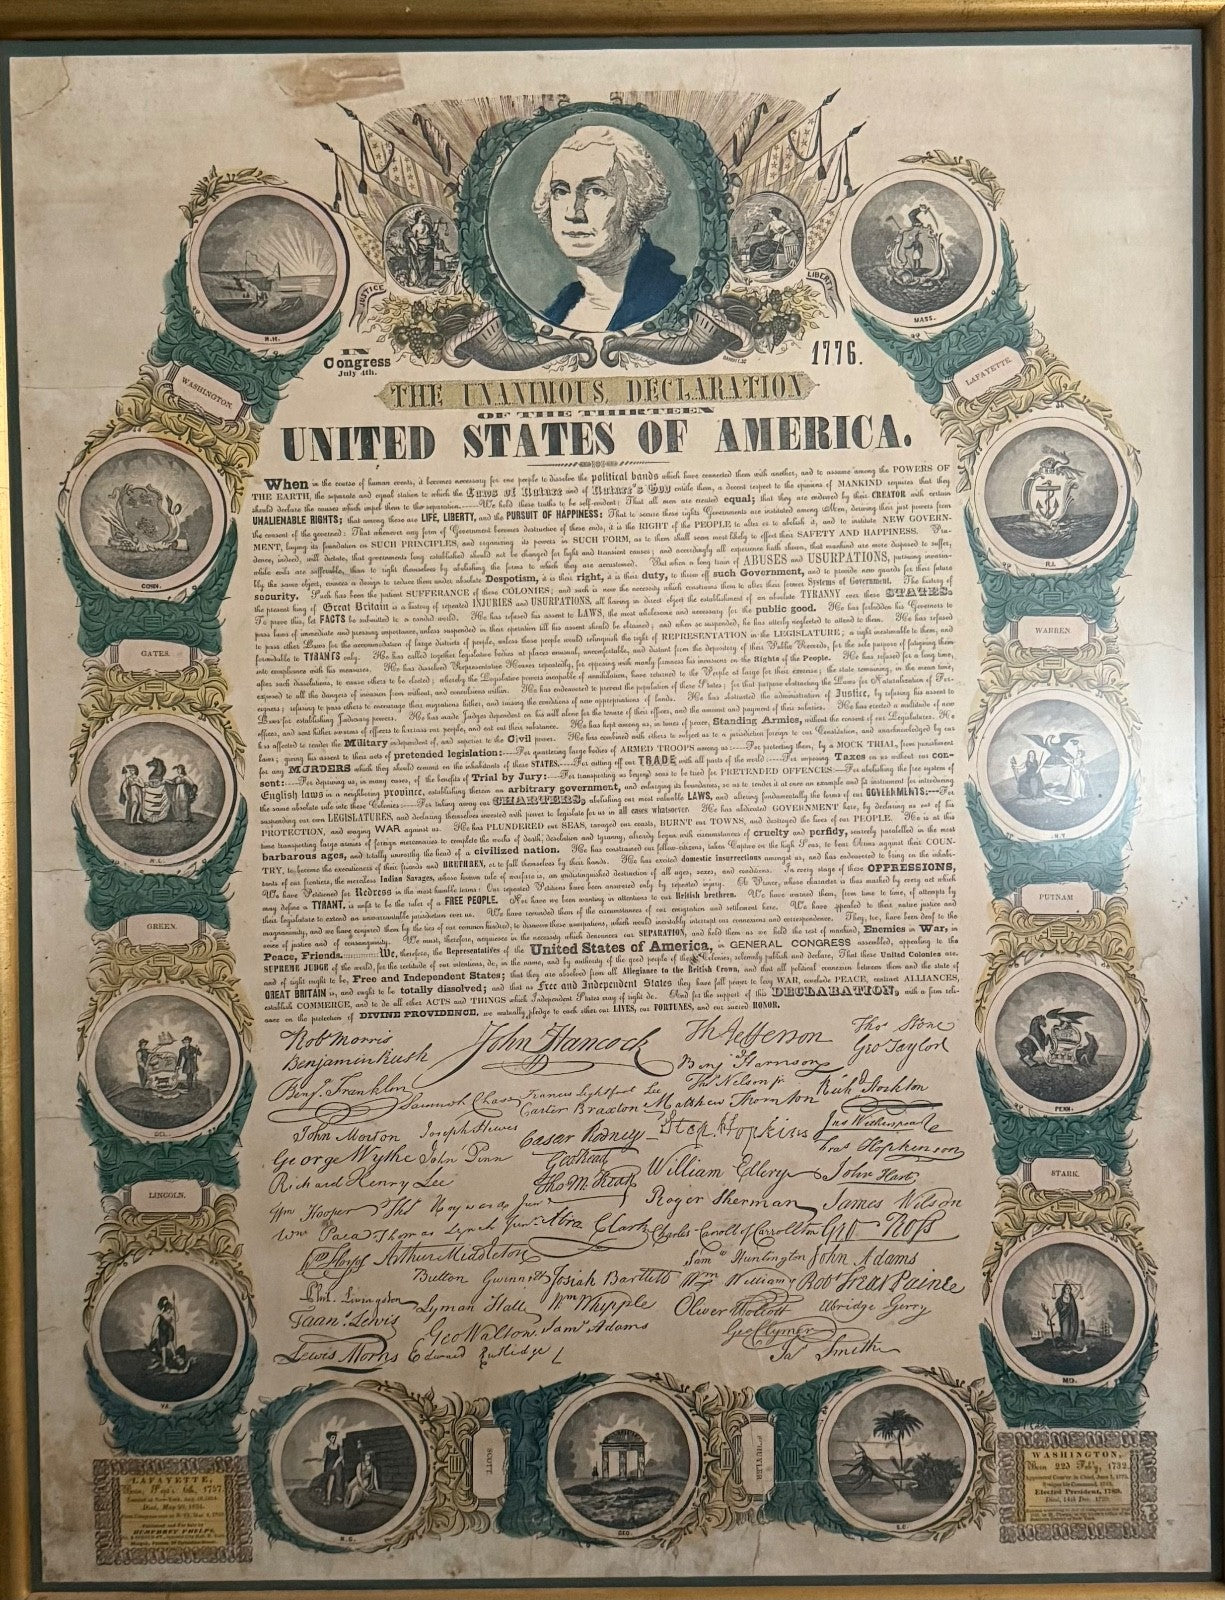 JUSTICE
LIBERTY
N.H.
MASS.
IN
Congress
July 4th.
1776.
THE UNANIMOUS DECLARATION
OF THE THIRTEEN
UNITED STATES OF AMERICA.
WASHINGTON.
LAFAYETTE.
CONN.
R.I.
GATES.
WARREN
N.Y.
GREEN.
PUTNAM
DEL.
PENN.
LINCOLN.
STARK.
VA.
MD.
When in the course of human events, it becomes necessary for one people to dissolve the political bands which have connected them with another, and to assume among the POWERS OF
THE EARTH, the separate and equal station to which the Laws of Nature and of Nature's God entitle them, a decent respect to the opinions of MANKIND requires that they
should declare the causes which impel them to the separation.——We hold these truths to be self-evident: That all men are created equal; that they are endowed by their CREATOR with certain
UNALIENABLE RIGHTS; that among these are LIFE, LIBERTY, and the PURSUIT OF HAPPINESS: That to secure these rights Governments are instituted among Men, deriving their just powers from
the consent of the governed: That whenever any form of Government becomes destructive of these ends, it is the RIGHT of the PEOPLE to alter or to abolish it, and to institute NEW GOVERN-
MENT, laying its foundation on SUCH PRINCIPLES, and organizing its powers in SUCH FORM, as to them shall seem most likely to effect their SAFETY AND HAPPINESS. Pru-
dence, indeed, will dictate, that governments long established should not be changed for light and transient causes; and accordingly all experience hath shown, that mankind are more disposed to suffer,
while evils are sufferable, than to right themselves by abolishing the forms to which they are accustomed. But when a long train of ABUSES AND USURPATIONS, pursuing invaria-
bly the same object, evinces a design to reduce them under absolute Despotism, it is their right, it is their duty, to throw off such Government, and to provide new guards for their future
security. Such has been the patient SUFFERANCE of these COLONIES; and such is now the necessity which constrains them to alter their former Systems of Government. The history of
the present king of Great Britain is a history of repeated INJURIES AND USURPATIONS, all having in direct object the establishment of an absolute TYRANNY over these STATES.
To prove this, let FACTS be submitted to a candid world. He has refused his assent to LAWS, the most wholesome and necessary for the public good. He has forbidden his Governors to
pass laws of immediate and pressing importance, unless suspended in their operation till his assent should be obtained; and when so suspended, he has utterly neglected to attend to them. He has refused
to pass other Laws for the accommodation of large districts of people, unless those people would relinquish the right of REPRESENTATION IN THE LEGISLATURE; a right inestimable to them, and
formidable to TYRANTS only. He has called together legislative bodies at places unusual, uncomfortable, and distant from the depository of their Public Records, for the sole purpose of fatiguing them
into compliance with his measures. He has dissolved Representative Houses repeatedly, for opposing with manly firmness his invasions on the Rights of the People. He has refused for a long time,
after such dissolutions, to cause others to be elected; whereby the Legislative powers incapable of annihilation, have returned to the People at large for their exercise; the state remaining, in the mean time,
exposed to all the dangers of invasion from without, and convulsions within. He has endeavored to prevent the population of these States; for that purpose obstructing the Laws for Naturalization of For-
eigners; refusing to pass others to encourage their migrations hither, and raising the conditions of new appropriations of lands. He has obstructed the administration of Justice, by refusing his assent to
Laws for establishing Judiciary powers. He has made Judges dependent on his will alone for the tenure of their offices, and the amount and payment of their salaries. He has erected a multitude of new
offices, and sent hither swarms of officers to harrass our people, and eat out their substance. He has kept among us, in times of peace, Standing Armies, without the consent of our Legislatures. He
has affected to render the Military independent of, and superior to the Civil power. He has combined with others to subject us to a jurisdiction foreign to our Constitution, and unacknowledged by our
laws; giving his assent to their acts of pretended legislation:——For quartering large bodies of ARMED TROOPS among us:——For protecting them, by a MOCK TRIAL, from punishment
for any MURDERS which they should commit on the inhabitants of these STATES.——For cutting off our TRADE with all parts of the world:——For imposing Taxes on us without our con-
sent:——For depriving us, in many cases, of the benefits of Trial by Jury:——For transporting us beyond seas to be tried for PRETENDED OFFENCES:——For abolishing the free system of
English laws in a neighboring province, establishing therein an arbitrary government, and enlarging its boundaries, so as to render it at once an example and fit instrument for introducing
the same absolute rule into these Colonies:——For taking away our CHARTERS, abolishing our most valuable LAWS, and altering fundamentally the forms of our GOVERNMENTS:——For
suspending our own LEGISLATURES, and declaring themselves invested with power to legislate for us in all cases whatsoever. He has abdicated GOVERNMENT here, by declaring us out of his
PROTECTION, and waging WAR against us. He has PLUNDERED our SEAS, ravaged our coasts, BURNT our TOWNS, and destroyed the lives of our PEOPLE. He is at this
time transporting large armies of foreign mercenaries to complete the works of death, desolation and tyranny, already begun with circumstances of cruelty and perfidy, scarcely paralleled in the most
barbarous ages, and totally unworthy the head of a civilized nation. He has constrained our fellow-citizens, taken Captive on the high Seas, to bear Arms against their COUN-
TRY, to become the executioners of their friends and BRETHREN, or to fall themselves by their hands. He has excited domestic insurrections amongst us, and has endeavored to bring on the inhabi-
tants of our frontiers, the merciless Indian Savages, whose known rule of warfare is, an undistinguished destruction of all ages, sexes, and conditions. In every stage of these OPPRESSIONS,
We have Petitioned for Redress in the most humble terms: Our repeated Petitions have been answered only by repeated injury. A Prince, whose character is thus marked by every act which
may define a TYRANT, is unfit to be the ruler of a FREE PEOPLE. Nor have we been wanting in attentions to our British brethren. We have warned them, from time to time, of attempts by
their legislature to extend an unwarrantable jurisdiction over us. We have reminded them of the circumstances of our emigration and settlement here. We have appealed to their native justice and
magnanimity, and we have conjured them by the ties of our common kindred, to disavow these usurpations, which would inevitably interrupt our connexions and correspondence. They, too, have been deaf to the
voice of justice and of consanguinity. We must, therefore, acquiesce in the necessity which denounces our SEPARATION, and hold them as we hold the rest of mankind, Enemies in War; in
Peace, Friends.——We, therefore, the Representatives of the United States of America, in GENERAL CONGRESS assembled, appealing to the
SUPREME JUDGE of the world, for the rectitude of our intentions, do, in the name, and by authority of the good people of these Colonies, solemnly publish and declare, That these United Colonies are,
and of right ought to be, Free and Independent States; that they are absolved from all Allegiance to the British Crown, and that all political connexion between them and the state of
GREAT BRITAIN is, and ought to be totally dissolved; and that as Free and Independent States they have full power to levy WAR, conclude PEACE, contract ALLIANCES,
establish COMMERCE, and to do all other ACTS AND THINGS which Independent States may of right do. And for the support of this DECLARATION, with a firm reli-
ance on the protection of DIVINE PROVIDENCE, we mutually pledge to each other our LIVES, our FORTUNES, and our sacred HONOR.
Robt Morris John Hancock Th Jefferson Thos Stone
Benjamin Rush Benj Harrison Geo Taylor
Benj. Franklin Samuel Chase Francis Lightfoot Lee Thos Nelson jr Richd Stockton
Carter Braxton Matthew Thornton
John Morton Joseph Hewes Caesar Rodney Step. Hopkins Jno Witherspoon
George Wythe John Penn Geo Read Fras Hopkinson
Richard Henry Lee Tho M. Kean William Ellery John Hart
Wm Hooper Thos Heyward Junr Roger Sherman James Wilson
Wm Paca Thomas Lynch Junr. Abra Clark Charles Carroll of Carrollton Geo Ross
Wm Floyd Arthur Middleton Saml Huntington John Adams
Button Gwinnett Josiah Bartlett Wm Williams Robt Treat Paine
Phil. Livingston Lyman Hall Wm Whipple Oliver Wolcott Elbridge Gerry
Fran. Lewis Geo Walton. Saml Adams Geo Clymer
Lewis Morris Edward Rutledge Jas Smith
SCOTT
SCHUYLER
N.C.
GEO.
S.C.
LAFAYETTE,
Born, Sept. 6th, 1757.
Died, May 20, 1834.
HUMPHREY PHELPS,
WASHINGTON,
Born 22d Feb'y, 1732.
Elected President, 1789.
Died, 14th Dec. 1799.